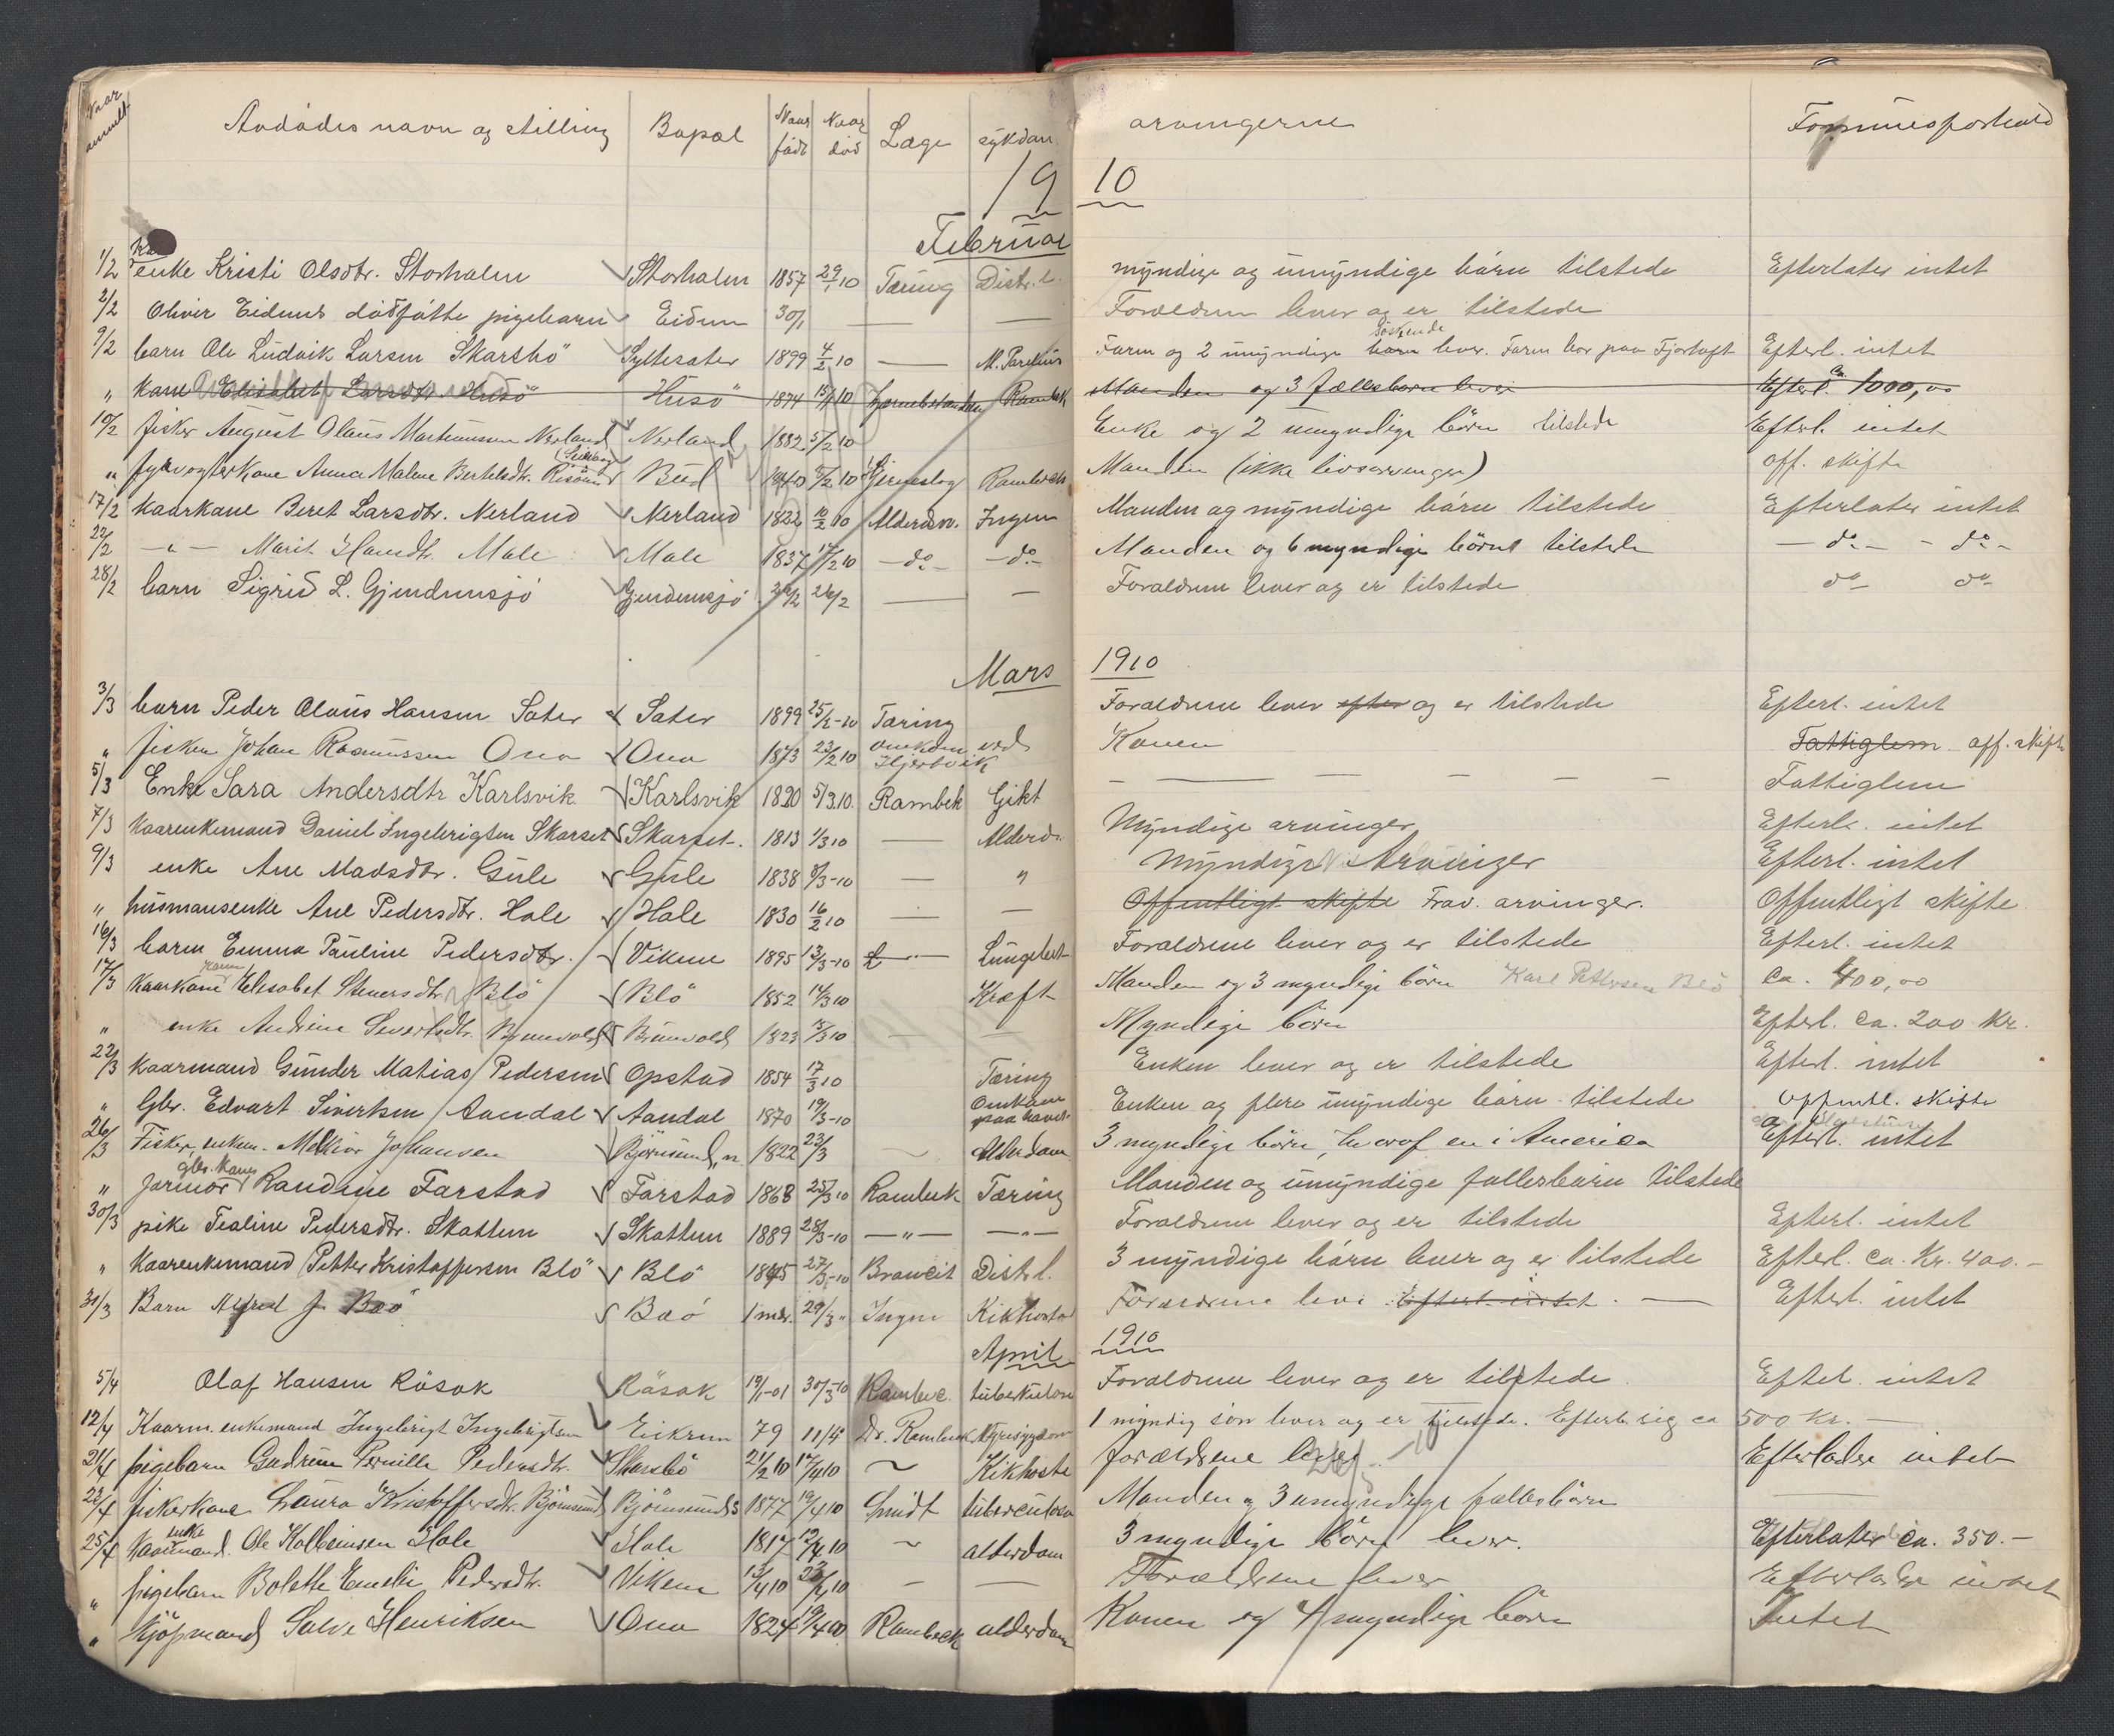 Naar anmeldt Avdødes navn og stilling Bopæl Naar født Naar død Læge sykdom arvingerne Formuesforhold
1910
Februar
1/2 enke Kristi Olsdtr. Storholm Storholm 1857 29/1 10 Tæring Distr.l. myndige og umyndige børn tilstede Efterlater intet
2/2 Oliver Eidems dødfødte pigebarn Eidem 30/1 — — Forældrene lever og er tilstede
9/2 barn Ole Ludvik Larsen Skarsbö Syltesæter 1899 4/2 10 — M. Faren og 2 umyndige børn søskende lever. Faren bor paa Fjørtoft Efterl. intet
" kane Elisabet Larsdtr. Husö Husö 1874 15/1 10 Rambek Manden og 3 fællesbørn lever Efterl. ca. 1000,00
10/2 fisker August Olaus Martinussen Nerland Nerland 1882 5/2 10 Enke og 2 umyndige börn tilstede Efterl. intet
" fyrvogterkone Anna Malene Bertelsdtr. Bud 1840 5/2 10 Hjerneslag Rambeck Manden (ikke livsarvinger) off. skifte
17/2 kaarkane Beret Larsdtr. Nerland Nerland 1822 10/2 10 Alderdom. Ingen Manden og myndige børn tilstede Efterlater intet
22/2 —"— Marit Hansdtr. Male Male 1837 17/2 10 —do— —do— Manden og 6 myndige børn tilstede —do— —do—
28/2 barn Sigrid L. Gjendemsjø Gjendemsjø 26/2 26/2 — — Forældrene lever og er tilstede do do
Mars 1910
3/3 barn Peder Olaus Hansen Sæter Sæter 1899 25/2-10 Tæring Forældrene lever efter og er tilstede Efterl. intet
" fisker Johan Rasmussen Ona Ona 1873 23/2 10 omkom ved Hjertvik Konen Fattiglem off. skifte
5/3 Enke Sara Andersdtr Karlsvik Karlsvik 1820 5/3 10. Rambek Gikt — — — — — Fattiglem
7/3 Kaarenkemand Daniel Ingebrigtsen Skarset Skarset. 1813 1/3 10 — Alderd. Myndige arvinger Efterl. intet
9/3 enke Ane Madsdtr. Gule Gule 1838 5/3-10 — " Myndige Arvinger Efterl. intet
" husmansenke Ane Pedersdtr. Hole Hole 1830 16/2 10 — — Offentligt skifte Frav. arvinger. Offentligt skifte
16/3 barn Emma Pauline Pedersdtr. Vikene 1895 13/3-10 — Forældrene lever og er tilstede Efterl. intet
17/3 Kaarkane Elisabet Steversdtr. Blö Blö 1852 14/3 10 Kræft Manden og 3 myndige börn Karl Pettersen Blö ca. 400,00
" enke Andrine Severtsdtr. Brunvold Brunvold 1823 15/3 10 — — Myndige börn Efterl. ca. 200 Kr.
22/3 Kaarmand Gunder Matias Pedersen Opstad 1854 17/3 10 Tæring Enken lever og er tilstede Efterl. intet
" Gbr. Edvart Sivertsen Aandal Aandal 1870 19/3-10 Omkom paa havet Enken og flere umyndige børn tilstede Offentl. skifte
26/3 Fisker, enkem. Melkior Johansen Björnsund, n. 1822 23/3 ~ Alderdom 3 myndige börn, herav en i America Efterl. intet
" gbr. kanes Jormor Randine Farstad Farstad 1868 25/3 10 Rambek Tæring Manden og umyndige fællesbørn tilstede
30/3 pike Tealine Pedersdtr. Skottem Skottem 1889 28/3-10 —"— —"— Forældrene lever og er tilstede Efterl. intet
" Kaarenkemand Petter Kristoffersen Blö Blö 1845 27/3-10 Distr.l. 3 myndige børn lever og er tilstede Efterl. ca. Kr. 400.-
31/3 Barn Alfred J. Boö Boö 1 mdr. 29/3 " Ingen Kikhoste Forældrene leve Efterl. intet — Efterl. intet
April 1910
5/4 Olaf Hansen Røsok Røsok 19/1-01 30/3-10 tuberkulose Forældrene lever og er tilstede. Efterl. intet
12/4 Kaarm. enkemand Ingebrigt Ingebrigtsen Eikrem 79 11/4 Dr. Rambeck Nyresygdom 1 myndig søn lever og er tilstede. Efterl. sig ca 500 Kr.
21/4 pigebarn Gudrun Pernille Pedersdtr. Skarsbö 21/2 10 17/4 10 ~ Kikhoste forældrene lever Efterlader intet
23/4 fiskerkone Laura Kristoffersdtr. Björnsund Björnsund s 1877 19/4 10 Smidt tuberculose Manden og 3 umyndige fællesbörn —
25/4 Kaarenkemand. Ole Kolbeinsen Hole Hole 1817 19/4 10 ~ alderdom 3 myndige börn lever. Efterlater ca. 350.-
" pigebarn Bolette Emelie Pedersdtr. Vikene 13/4 10 23/4 10 — — Forældrene lever Efterlader intet
" kjöpmand Salve Henriksen Ona 1824 19/4 10 Rambeck alderdom Konen og 4 myndige börn Intet